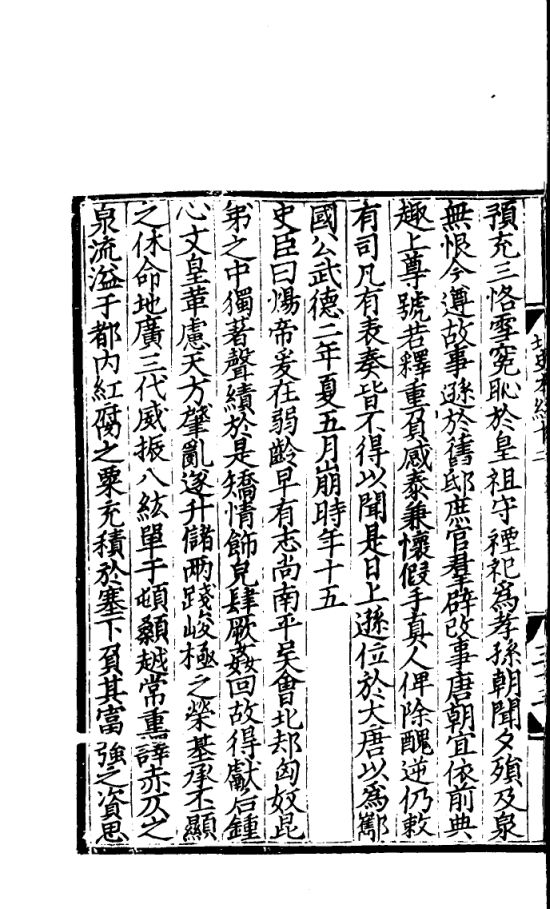 預充三恪雪寃恥於皇祖守禋祀爲孝孫朝聞夕殞及泉
無恨今遵故事遜於舊邸庶官羣辟改事唐朝宜依前典
趣上尊號若釋重負感泰兼懷假手真人俾除醜逆仍敕
有司凡有表奏皆不得以聞是日上遜位於大唐以爲酅
國公武德二年夏五月崩時年十五
史臣曰煬帝爰在弱齡早有志尚南平吳會北却匈奴昆
弟之中獨著聲績於是矯情飾皃肆厥姦回故得獻后鍾
心文皇革慮天方肇亂遂升儲兩踐峻極之榮基承丕顯
之休命地廣三代威振八紘單于頓顙越常重譯赤仄之
泉流溢于都內紅腐之粟充積於塞下負其富強之資思